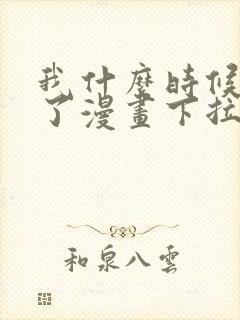 我什麼時候
了漫畫下拉
和泉八雲